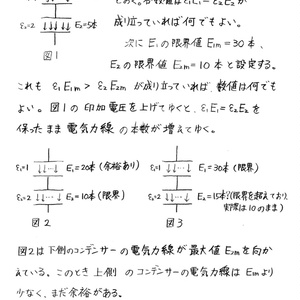 ε₂=2 E₂=5本
図1
成立っていれば何でもよい。
次に E₁の限界値 E₁m=30本、
E₂の限界値 E₂m=10本 と設定する。
これも ε₁E₁m > ε₂E₂m が成り立っていれば、数値は何でも
よい。図1の印加電圧を上げてゆくと、ε₁E₁=ε₂E₂を
保ったまま電気力線の本数が増えてゆく。
ε₁=1 E₁=20本(余裕あり)
ε₂=2 E₂=10本(限界)
図2
ε₁=1 E₁=30本(限界)
ε₂=2 E₂=15本?(限界を超えており、
実際は10のまま)
図3
図2は下側のコンデンサーの電気力線が最大値 E₂mを向か
えている。このとき上側のコンデンサーの電気力線は E₁mより
少なく、まだ余裕がある。